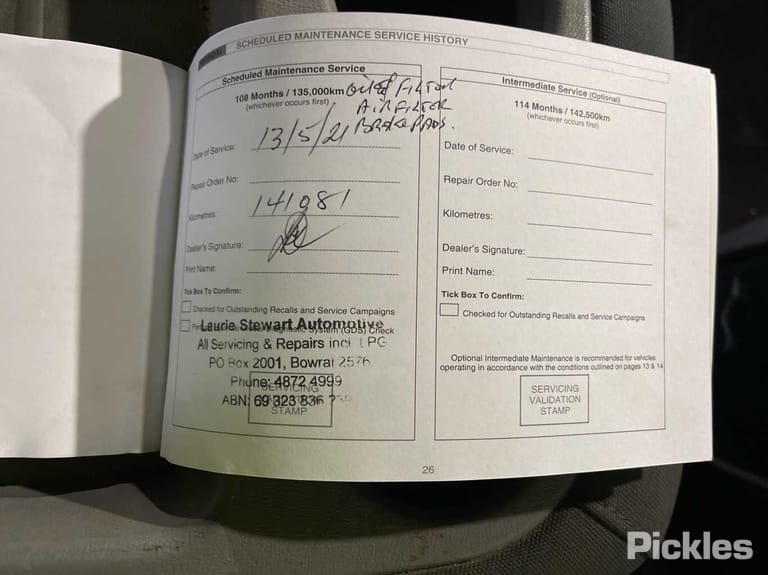 SCHEDULED MAINTENANCE SERVICE HISTORY
Scheduled Maintenance Service
108 Months / 135,000km
(whichever occurs first)
OIL & FILTER
AIR FILTER
BRAKE PADS.
Date of Service: 13/5/21
Repair Order No:
Kilometres: 141981
Dealer's Signature:
Print Name:
Tick Box To Confirm:
Checked for Outstanding Recalls and Service Campaigns
System (GDS) Check
Laurie Stewart Automotive
All Servicing & Repairs incl LPG
PO Box 2001, Bowral 2576
Phone: 4872 4999
ABN: 69 323 836
SERVICING
STAMP
Intermediate Service (Optional)
114 Months / 142,500km
(whichever occurs first)
Date of Service:
Repair Order No:
Kilometres:
Dealer's Signature:
Print Name:
Tick Box To Confirm:
Checked for Outstanding Recalls and Service Campaigns
Optional Intermediate Maintenance is recommended for vehicles
operating in accordance with the conditions outlined on pages 13 & 14
SERVICING
VALIDATION
STAMP
26
Pickles